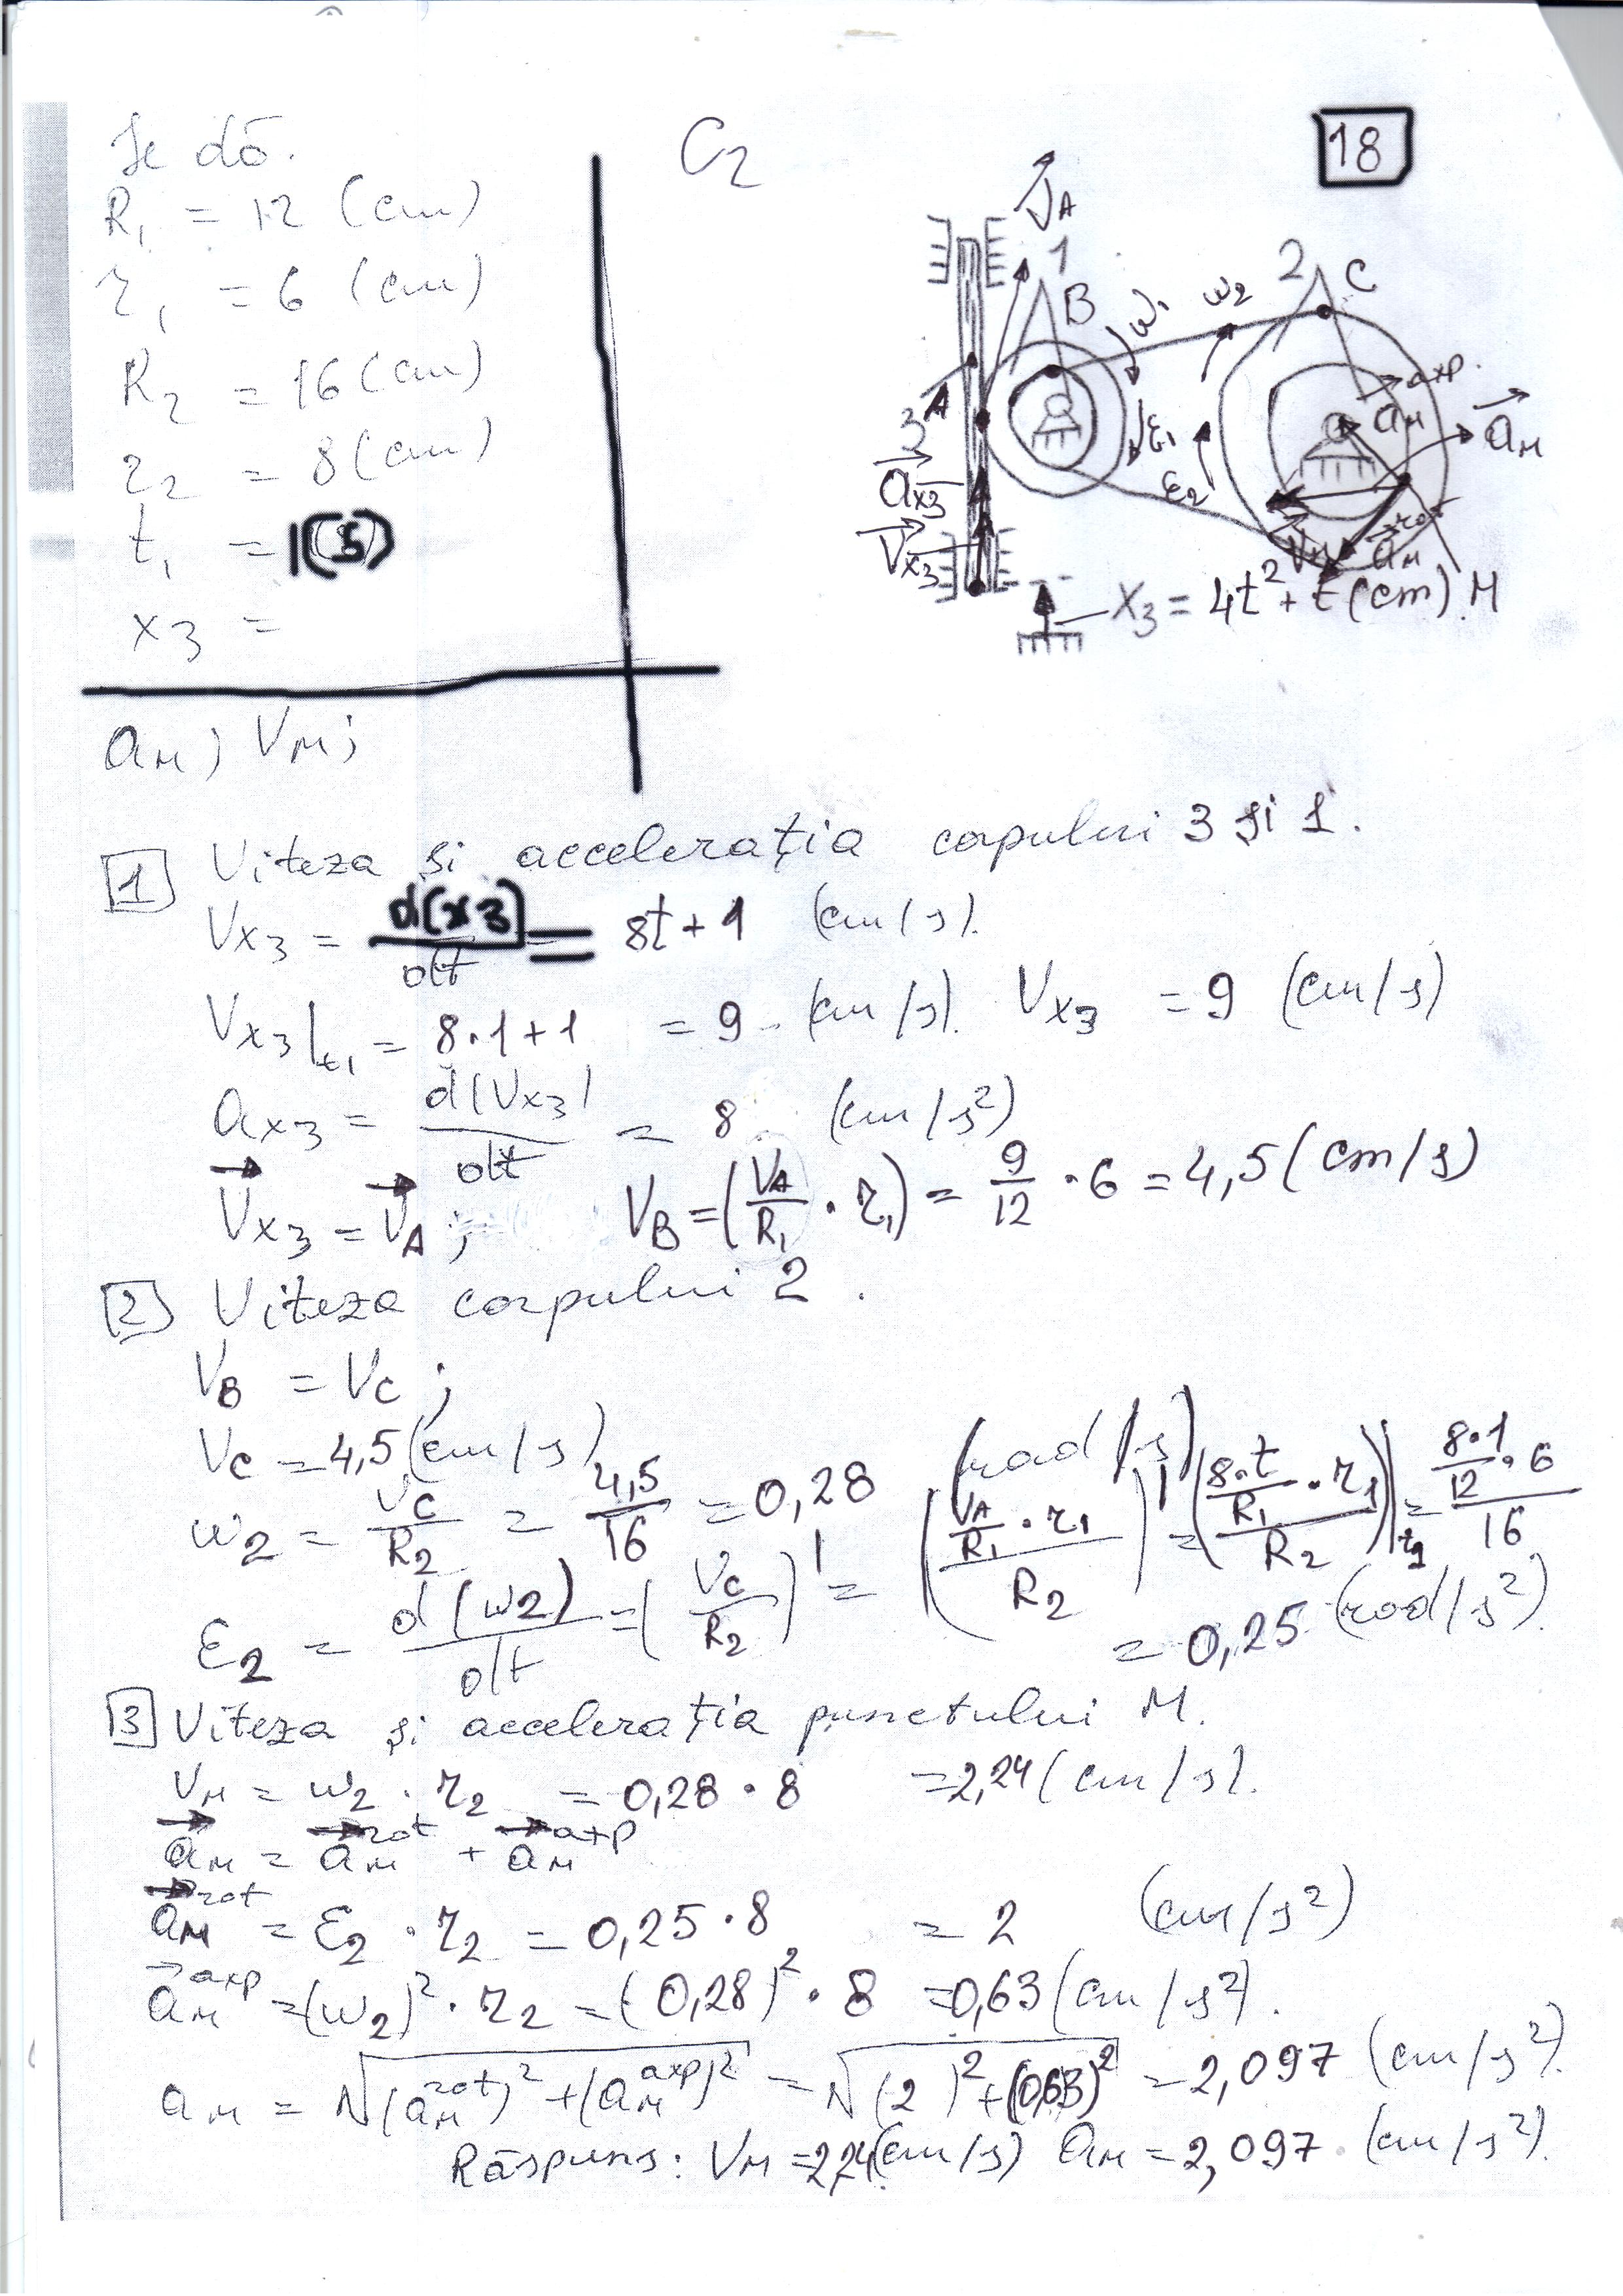 Se dă.
R₁ = 12 (cm)
r₁ = 6 (cm)
R₂ = 16 (cm)
r₂ = 8 (cm)
t₁ = 1(s)
x₃ =
aM; VM;
C₂
18
VA
1
B
ω₁
ω₂
2
C
3
A
ε₁
ε₂
aₓ₃
Vₓ₃
aM axp.
aM
VM
aM rot
M
x₃ = 4t² + t (cm)
1 Viteza și accelerația corpului 3 și 1.
Vx₃ = d(x₃)/dt = 8t + 1 (cm/s).
Vx₃|t₁ = 8·1+1 = 9 (cm/s). Vx₃ = 9 (cm/s)
ax₃ = d(Vx₃)/dt = 8 (cm/s²)
Vx₃ = VA; VB = (VA/R₁ · r₁) = 9/12 · 6 = 4,5 (cm/s)
2 Viteza corpului 2.
VB = VC;
VC = 4,5 (cm/s)
ω₂ = VC/R₂ = 4,5/16 = 0,28 (rad/s)
ε₂ = d(ω₂)/dt = (VC/R₂)' = ((VA/R₁ · r₁)/R₂)' = ((8·t/R₁ · r₁)/R₂)|t₁ = (8·1/12 · 6)/16
= 0,25 (rad/s²).
3 Viteza și accelerația punctului M.
VM = ω₂ · r₂ = 0,28 · 8 = 2,24 (cm/s).
aM = aM rot + aM axp
aM rot = ε₂ · r₂ = 0,25 · 8 = 2 (cm/s²)
aM axp = (ω₂)² · r₂ = (0,28)² · 8 = 0,63 (cm/s²).
aM = √(aM rot)² + (aM axp)² = √(2)² + (0,63)² = 2,097 (cm/s²).
Răspuns: VM = 2,24 (cm/s) aM = 2,097 (cm/s²).